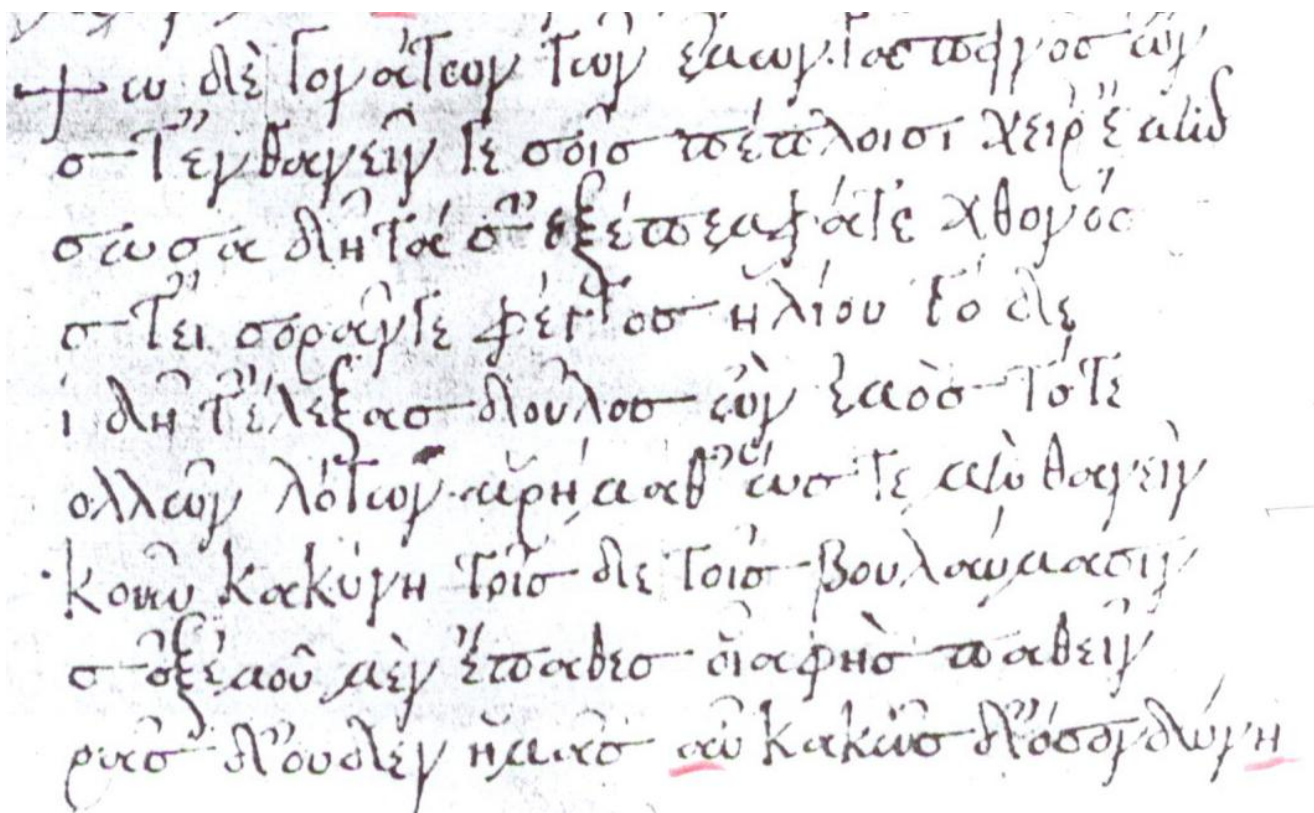 ψω δὲ γονάτων τῶν ἐμῶν ταπεινὸς ὢν
στ' ἐνθανεῖν γε σοῖς πέπλοισι χεῖρ' ἐμὴν
σωσα δῆτά σ' ἐξέπεμψάτε χθονός
στ' εἰσορᾶν γε φέγγος ἡλίου τόδε
ί δῆτ' ἔλεξας δοῦλος ὢν ἐμὸς τότε
ολλῶν λόγων εὑρήμαθ' ὥστε μὴ θανεῖν
κουν κακύνη τοῖσδε τοῖς βουλεύμασιν
ς ἐξ ἐμοῦ μὲν ἔπαθες οἷα φὴς παθεῖν
ρᾶς δ' οὐδὲν ἡμᾶς εὖ κακῶς δ' ὅσον δύνη